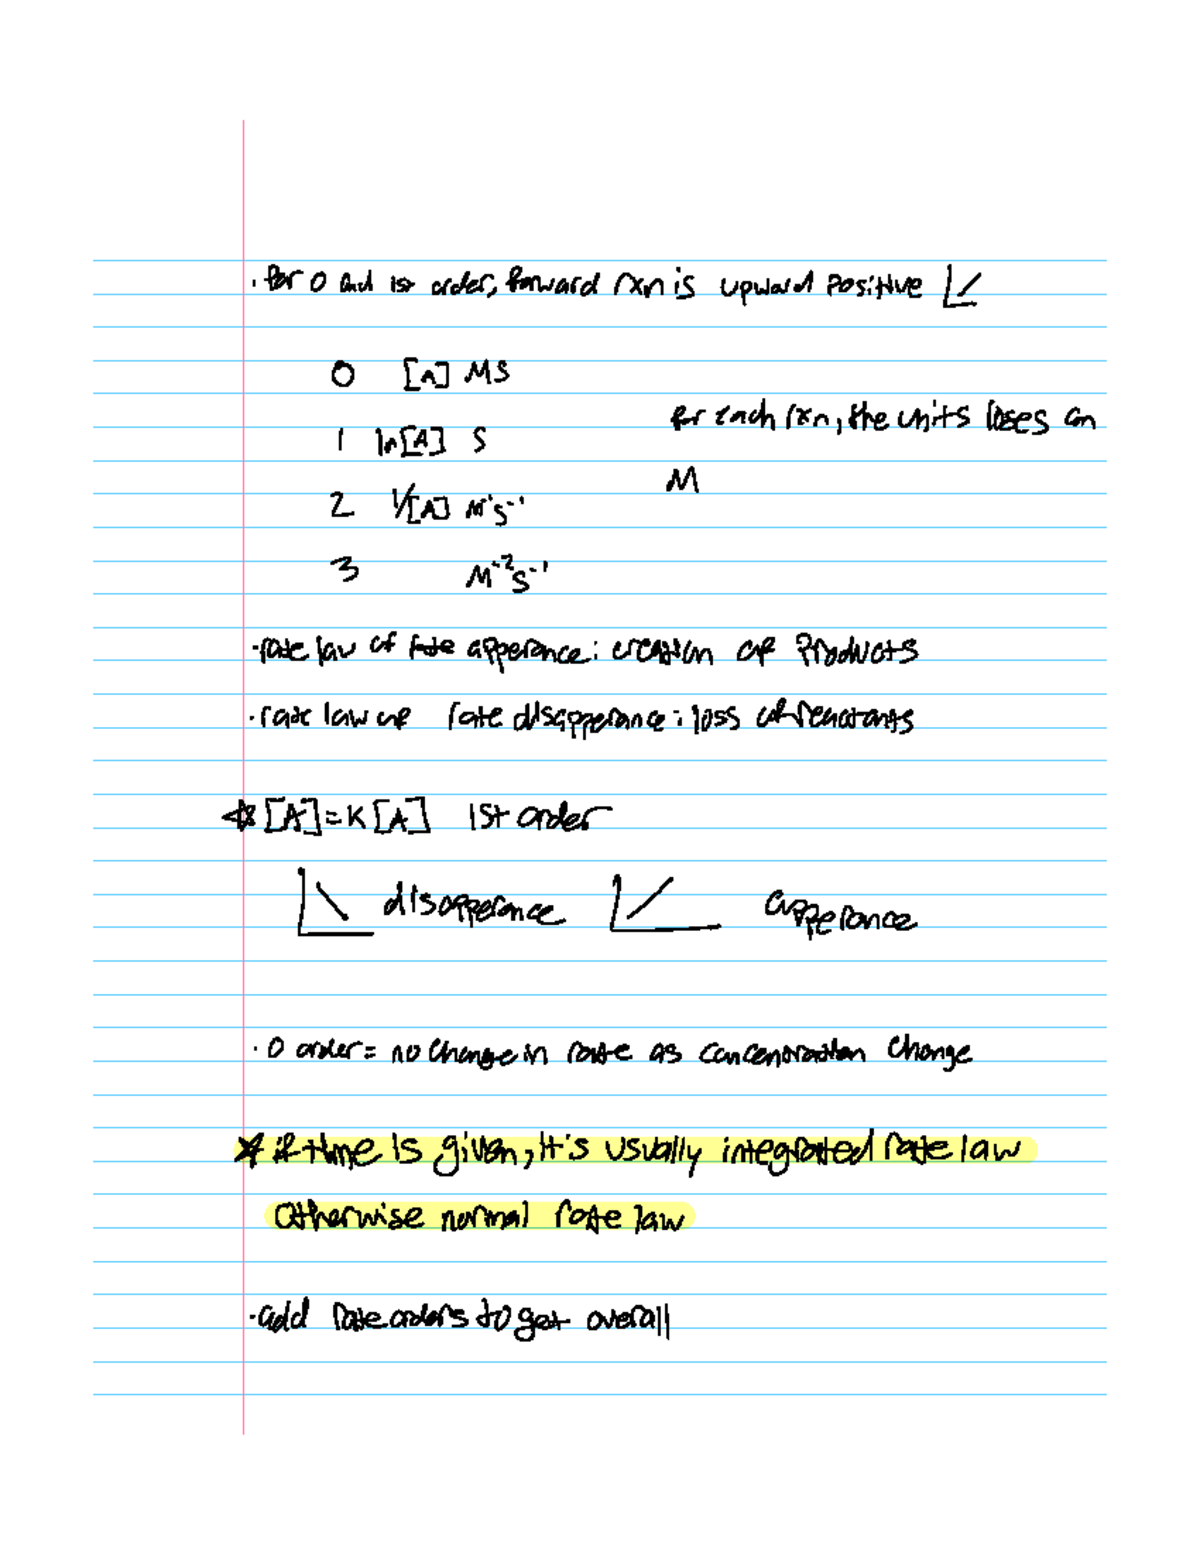 · for 0 and 1st order, forward rxn is upward positive
0 [A] MS
1 ln[A] S
for each rxn, the units loses an
M
2 1/[A] M⁻¹S⁻¹
3 M⁻²S⁻¹
· rate law of rate apperance: creation of products
· rate law of rate disapperance: loss of reactants
[A]=K[A] 1st order
disapperance apperance
· 0 order = no change in rate as concentration change
* if time is given, it's usually integrated rate law
otherwise normal rate law
· add rate orders to get overall